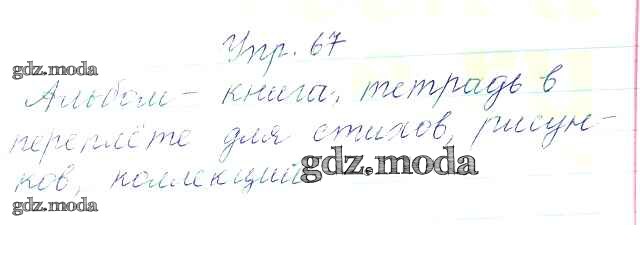 Упр. 67
gdz.moda
Альбом – книга, тетрадь в
переплёте для стихов, рисун-
ков, коллекций
gdz.moda
gdz.moda